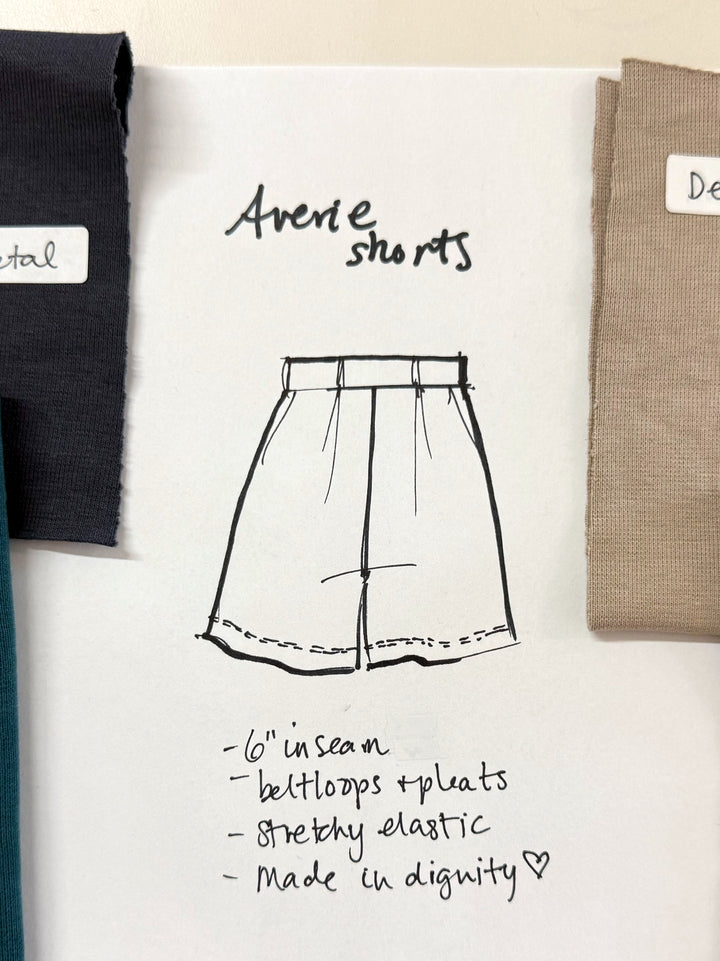 Averie
shorts
etal
De
- 6" inseam
- beltloops + pleats
- stretchy elastic
- Made in dignity ♡